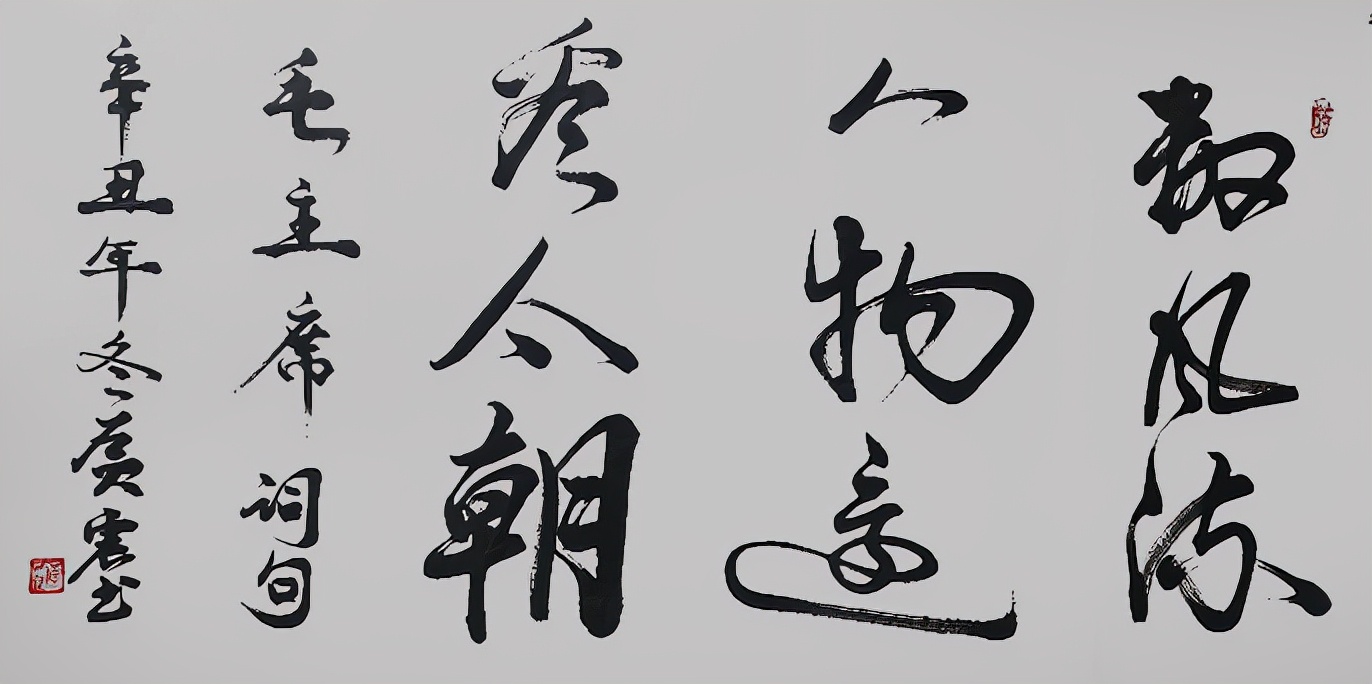 数风流
人物还
看今朝
毛主席词句
辛丑年冬黄震书